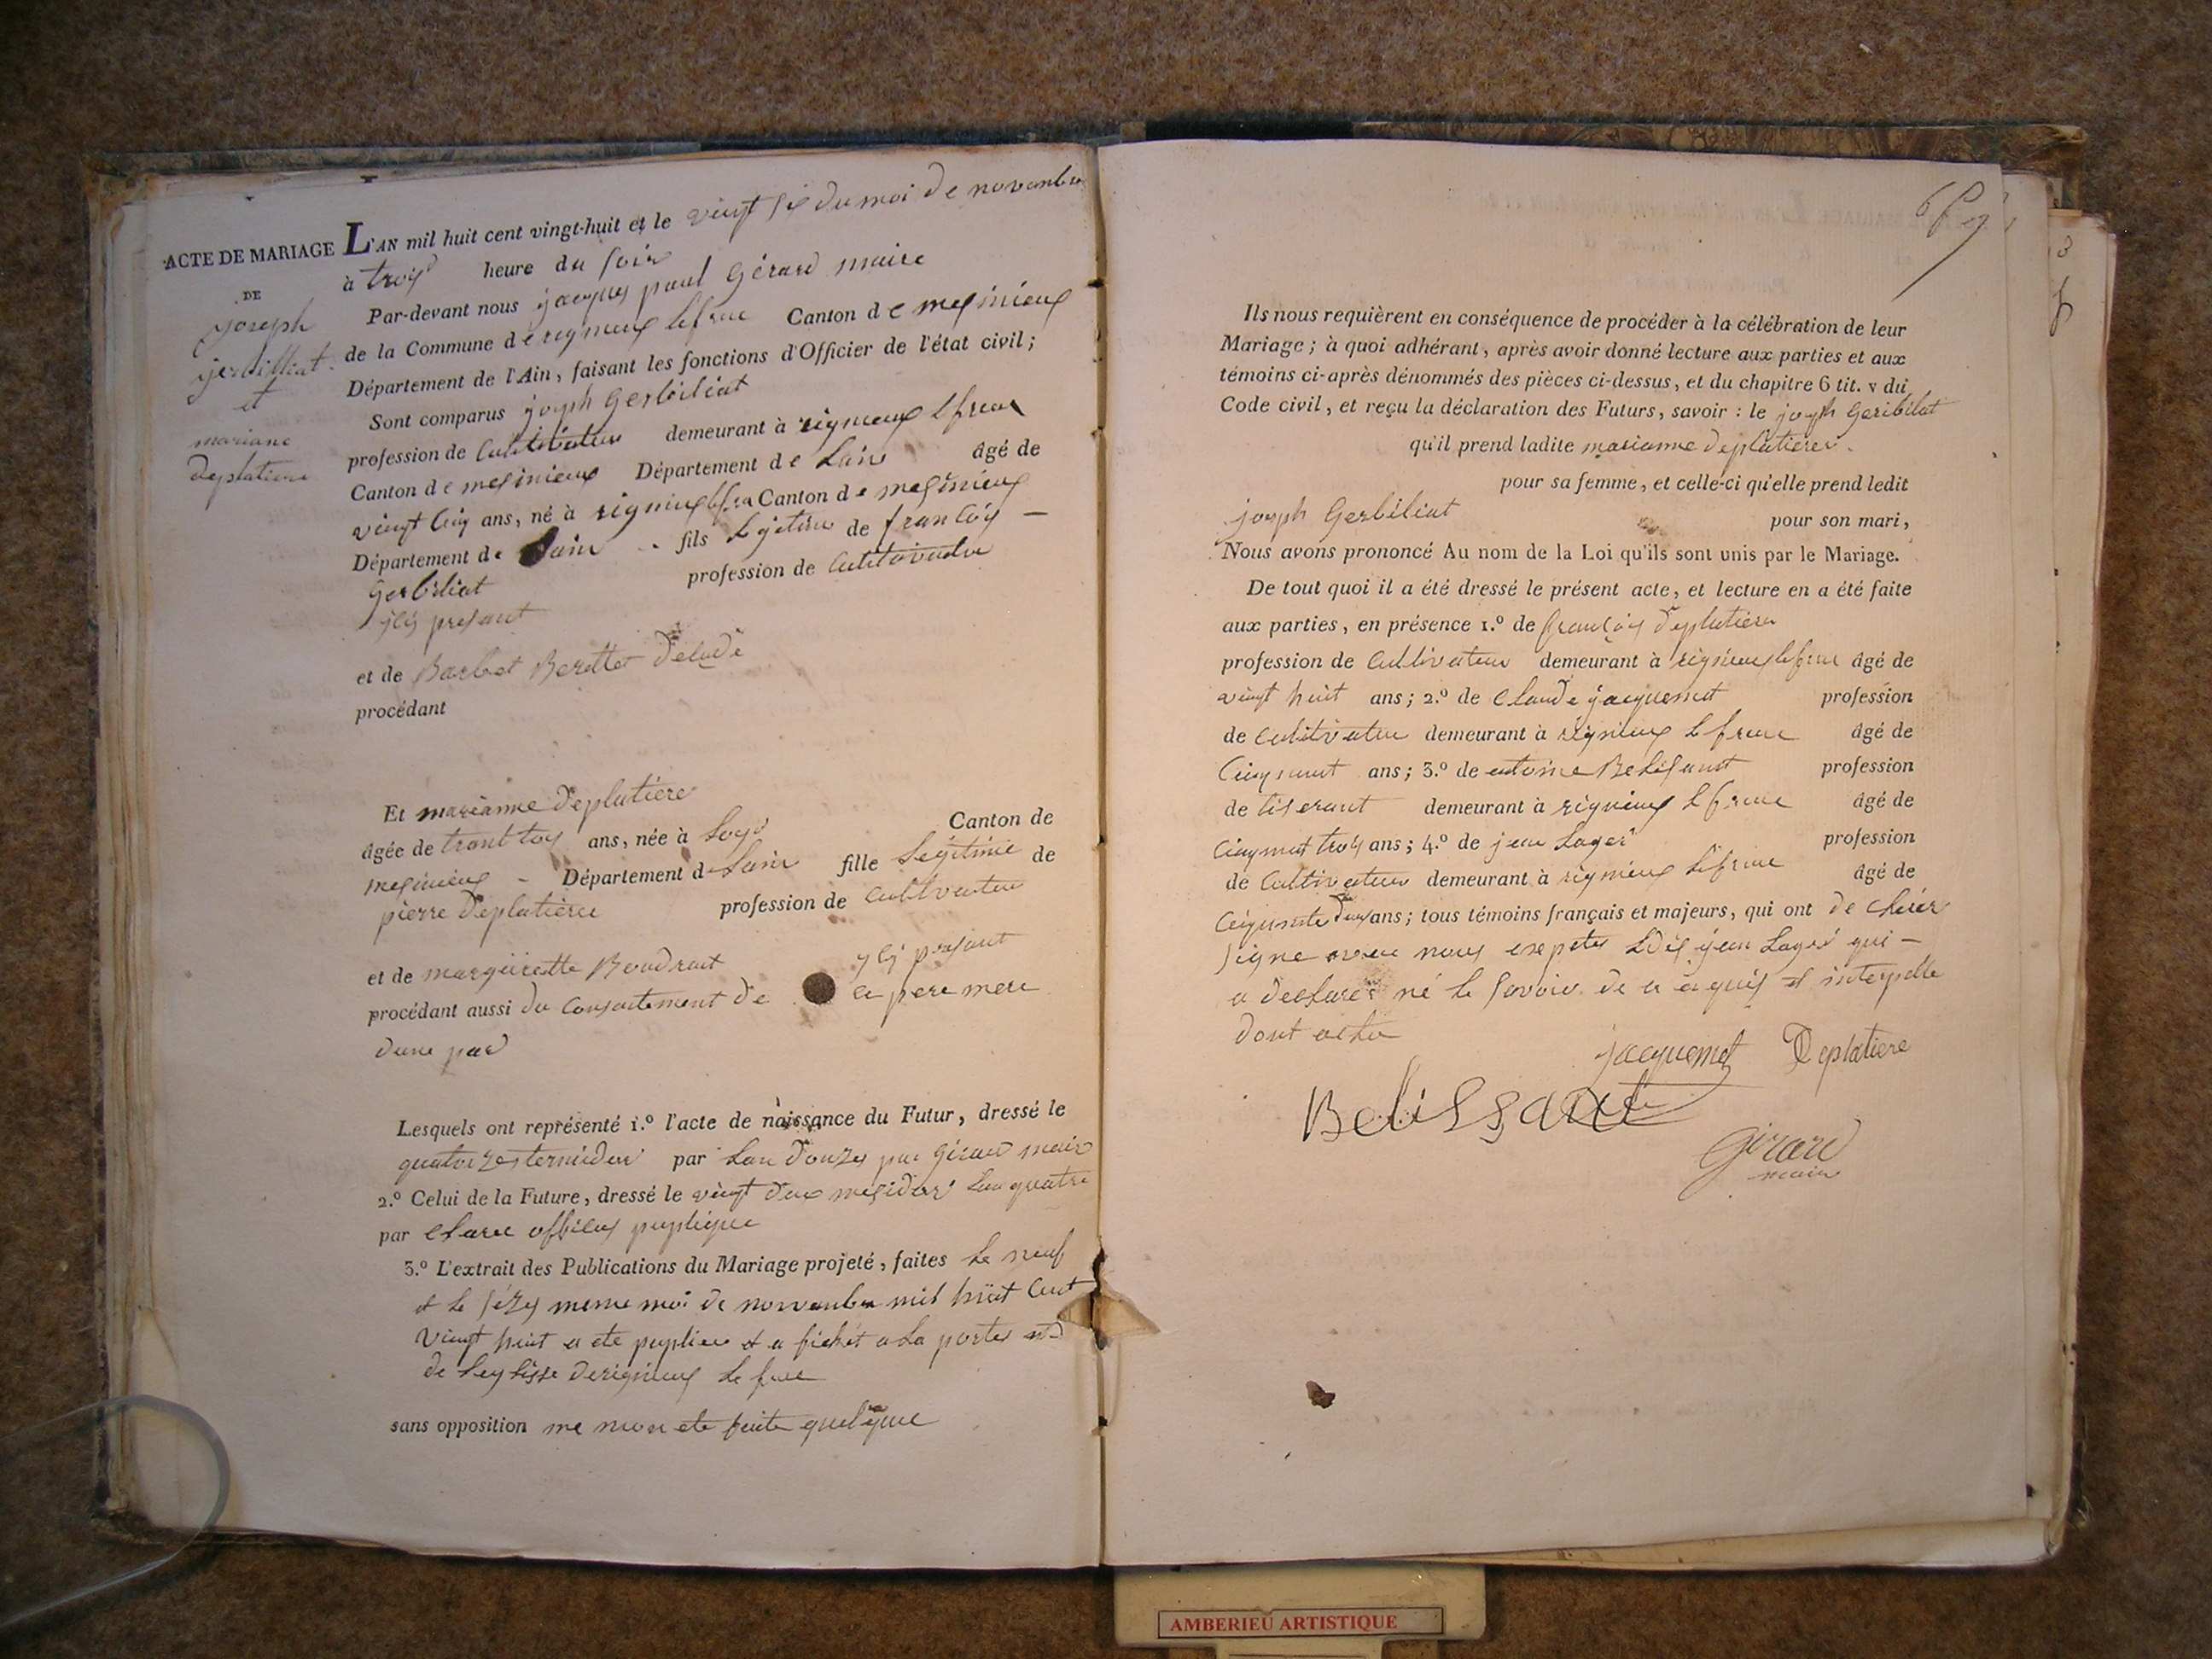 ACTE DE MARIAGE
DE
joseph
gerbilliat
et
mariane
deplatiere
L'AN mil huit cent vingt-huit et le vingt six du moi de novembre
à troys heure du soir
Par-devant nous jacques paul Gérard maire
de la Commune de rignieux lefranc Canton de meximieux
Département de l'Ain, faisant les fonctions d'Officier de l'état civil;
Sont comparus joseph Gerbiliat
profession de Cultivateur demeurant à rignieux lefranc
Canton de meximieux Département de Lain âgé de
vingt Cinq ans, né à rignieux lefra Canton de meximieux
Département de Lain fils Légitime de françois
Gerbiliat profession de Cultivateur
present
et de Barbet Berttet
procédant
Et marianne deplatière
âgée de trant troy ans, née à Loye Canton de
meximieux Département de Lain fille Legitime de
pierre deplatiere profession de Cultivateur
et de margueritte Boudrat present
procédant aussi du Consantement de ce pere mere
dune par
Lesquels ont représenté 1.º l'acte de naissance du Futur, dressé le
quatorze termidor par Lan douze par Gérard maire
2.º Celui de la Future, dressé le vingt deux mesidor Lan quatre
par Clare officies puplique
3.º L'extrait des Publications du Mariage projeté, faites Le neuf
et le séze meme moi de novembre mil huit Cent
vingt huit a ete puplier et a fichét a La porte
de Leglisse derignieux le franc
sans opposition me nion ete faite quelque
Ils nous requièrent en conséquence de procéder à la célébration de leur
Mariage; à quoi adhérant, après avoir donné lecture aux parties et aux
témoins ci-après dénommés des pièces ci-dessus, et du chapitre 6 tit. v du
Code civil, et reçu la déclaration des Futurs, savoir: le joseph Geribilat
qu'il prend ladite marianne deplatiere
pour sa femme, et celle-ci qu'elle prend ledit
joseph Gerbiliat pour son mari,
Nous avons prononcé Au nom de la Loi qu'ils sont unis par le Mariage.
De tout quoi il a été dressé le présent acte, et lecture en a été faite
aux parties, en présence 1.º de françois deplatiere
profession de Cultivateur demeurant à rignieux lefranc âgé de
vingt huit ans; 2.º de Claude jacquemet profession
de cultivateur demeurant à rignieux le franc âgé de
Cinquant ans; 3.º de antoine Belisant profession
de tiserant demeurant à rignieux le franc âgé de
Cinquant troys ans; 4.º de jean Loger profession
de Cultivateur demeurant à rignieux Lefranc âgé de
Cinquante deux ans; tous témoins français et majeurs, qui ont
signe avec nous jean qui
a declarer né le savoir de a et interpelle
dont acte
jacquemet Deplatiere
Belissant
Girard
maire
AMBERIEU ARTISTIQUE